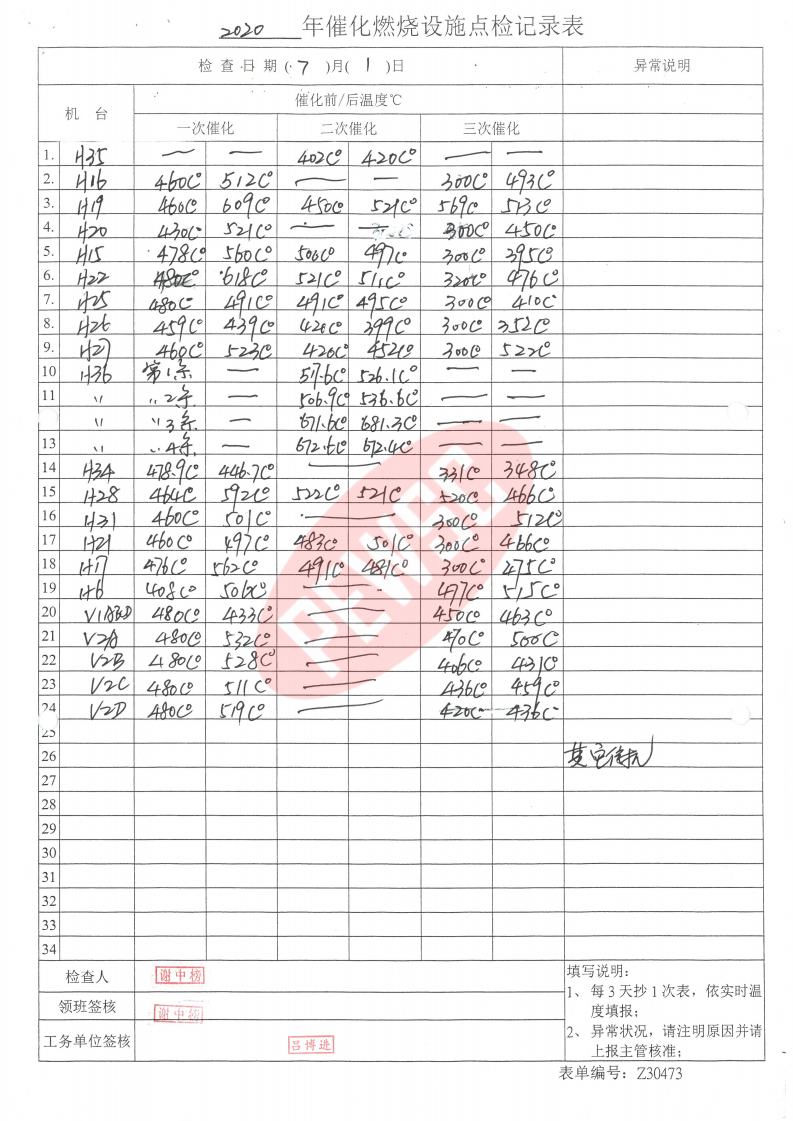 2020 年催化燃烧设施点检记录表
检查日期(7)月(1)日 异常说明
机 台 催化前/后温度℃
一次催化 二次催化 三次催化
1. H35 — — 402C° 420C° — —
2. H16 460C° 512C° — — 300C° 493C°
3. H19 460C° 609C° 450C° 521C° 569C° 513C°
4. H20 430C° 521C° — — 300C° 450C°
5. H15 478C° 560C° 506C° 497C° 300C° 395C°
6. H22 480C° 618C° 521C° 511C° 320C° 476C°
7. H25 480C° 491C° 491C° 495C° 300C° 410C°
8. H26 459C° 439C° 420C° 399C° 300C° 352C°
9. H27 460C° 523C° 420C° 452C° 300C° 522C°
10 H36 第1条 — 517.6C° 526.1C° — —
11 〃 〃2条 — 506.9C° 536.6C° — —
〃 〃3条 — 671.6C° 681.3C° — —
13 〃 〃4条 — 672.6C° 672.4C° — —
14 H34 478.9C° 446.7C° — 331C° 348C°
15 H28 464C° 592C° 522C° 521C° 520C° 466C°
16 H31 460C° 501C° — 300C° 512C°
17 H21 460C° 497C° 483C° 501C° 300C° 466C°
18 H17 476C° 562C° 491C° 481C° 300C° 275C°
19 H6 408C° 506C° — 477C° 515C°
20 480C° 433C° — 450C° 463C°
21 V2A 480C° 532C° — 470C° 500C°
22 V2B 480C° 528C° — 406C° 431C°
23 V2C 480C° 511C° — 436C° 459C°
24 V2D 480C° 519C° — 420C° 436C°
25
26
27
28
29
30
31
32
33
34
PEWSC
检查人 谢中榜
领班签核 谢中榜
工务单位签核 吕博进
填写说明:
1、每3天抄1次表，依实时温
度填报;
2、异常状况，请注明原因并请
上报主管核准;
表单编号：Z30473